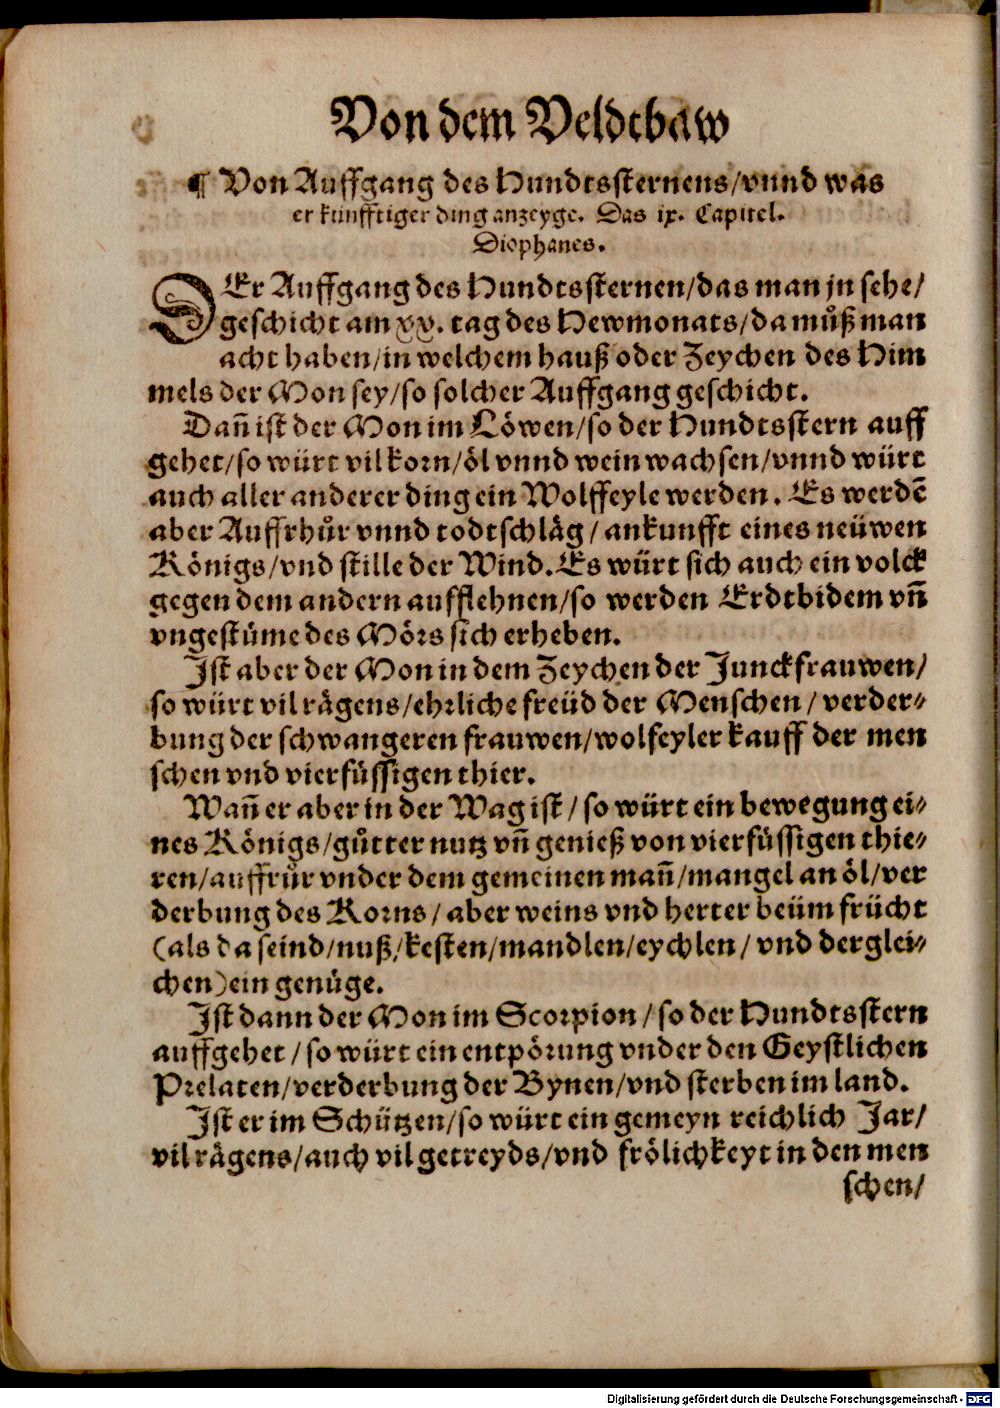 Von dem Veldtbaw
¶ Von Auffgang des Hundtssternens/vnnd was
er künfftiger ding anzeyge. Das ix. Capitel.
Diophanes.
DEr Auffgang des Hundtssternen/das man jn sehe/
geschicht am xx. tag des Hewmonats/da můß man
acht haben/in welchem hauß oder Zeychen des Him
mels der Mon sey/so solcher Auffgang geschicht.
Dañ ist der Mon im Löwen/so der Hundtsstern auff
gehet/so würt vil korn/öl vnnd wein wachsen/vnnd würt
auch aller anderer ding ein Wolffeyle werden. Es werdē
aber Auffrhůr vnnd todtschläg/ankunfft eines neüwen
Königs/vnd stille der Wind. Es würt sich auch ein volck
gegen dem andern aufflehnen/so werden Erdtbidem vñ
vngestüme des Mörs sich erheben.
Ist aber der Mon in dem Zeychen der Junckfrauwen/
so würt vil rägens/ehrliche freüd der Menschen/verder-
bung der schwangeren frauwen/wolfeyler kauff der men
schen vnd vierfüssigen thier.
Wañ er aber in der Wag ist/so würt ein bewegung ei-
nes Königs/gůtter nutz vñ genieß von vierfüssigen thie-
ren/auffrůr vnder dem gemeinen mañ/mangel an öl/ver
derbung des Korns/aber weins vnd herter beüm frücht
(als da seind/nuß/kesten/mandlen/eychlen/vnd derglei-
chen) ein genüge.
Ist dann der Mon im Scorpion/so der Hundtsstern
auffgehet/so würt ein entpörung vnder den Geystlichen
Prelaten/verderbung der Bynen/vnd sterben im land.
Ist er im Schützen/so würt ein gemeyn reichlich Jar/
vil rägens/auch vil getreyds/vnd frölichkeyt in den men
schen/
Digitalisierung gefördert durch die Deutsche Forschungsgemeinschaft - DFG